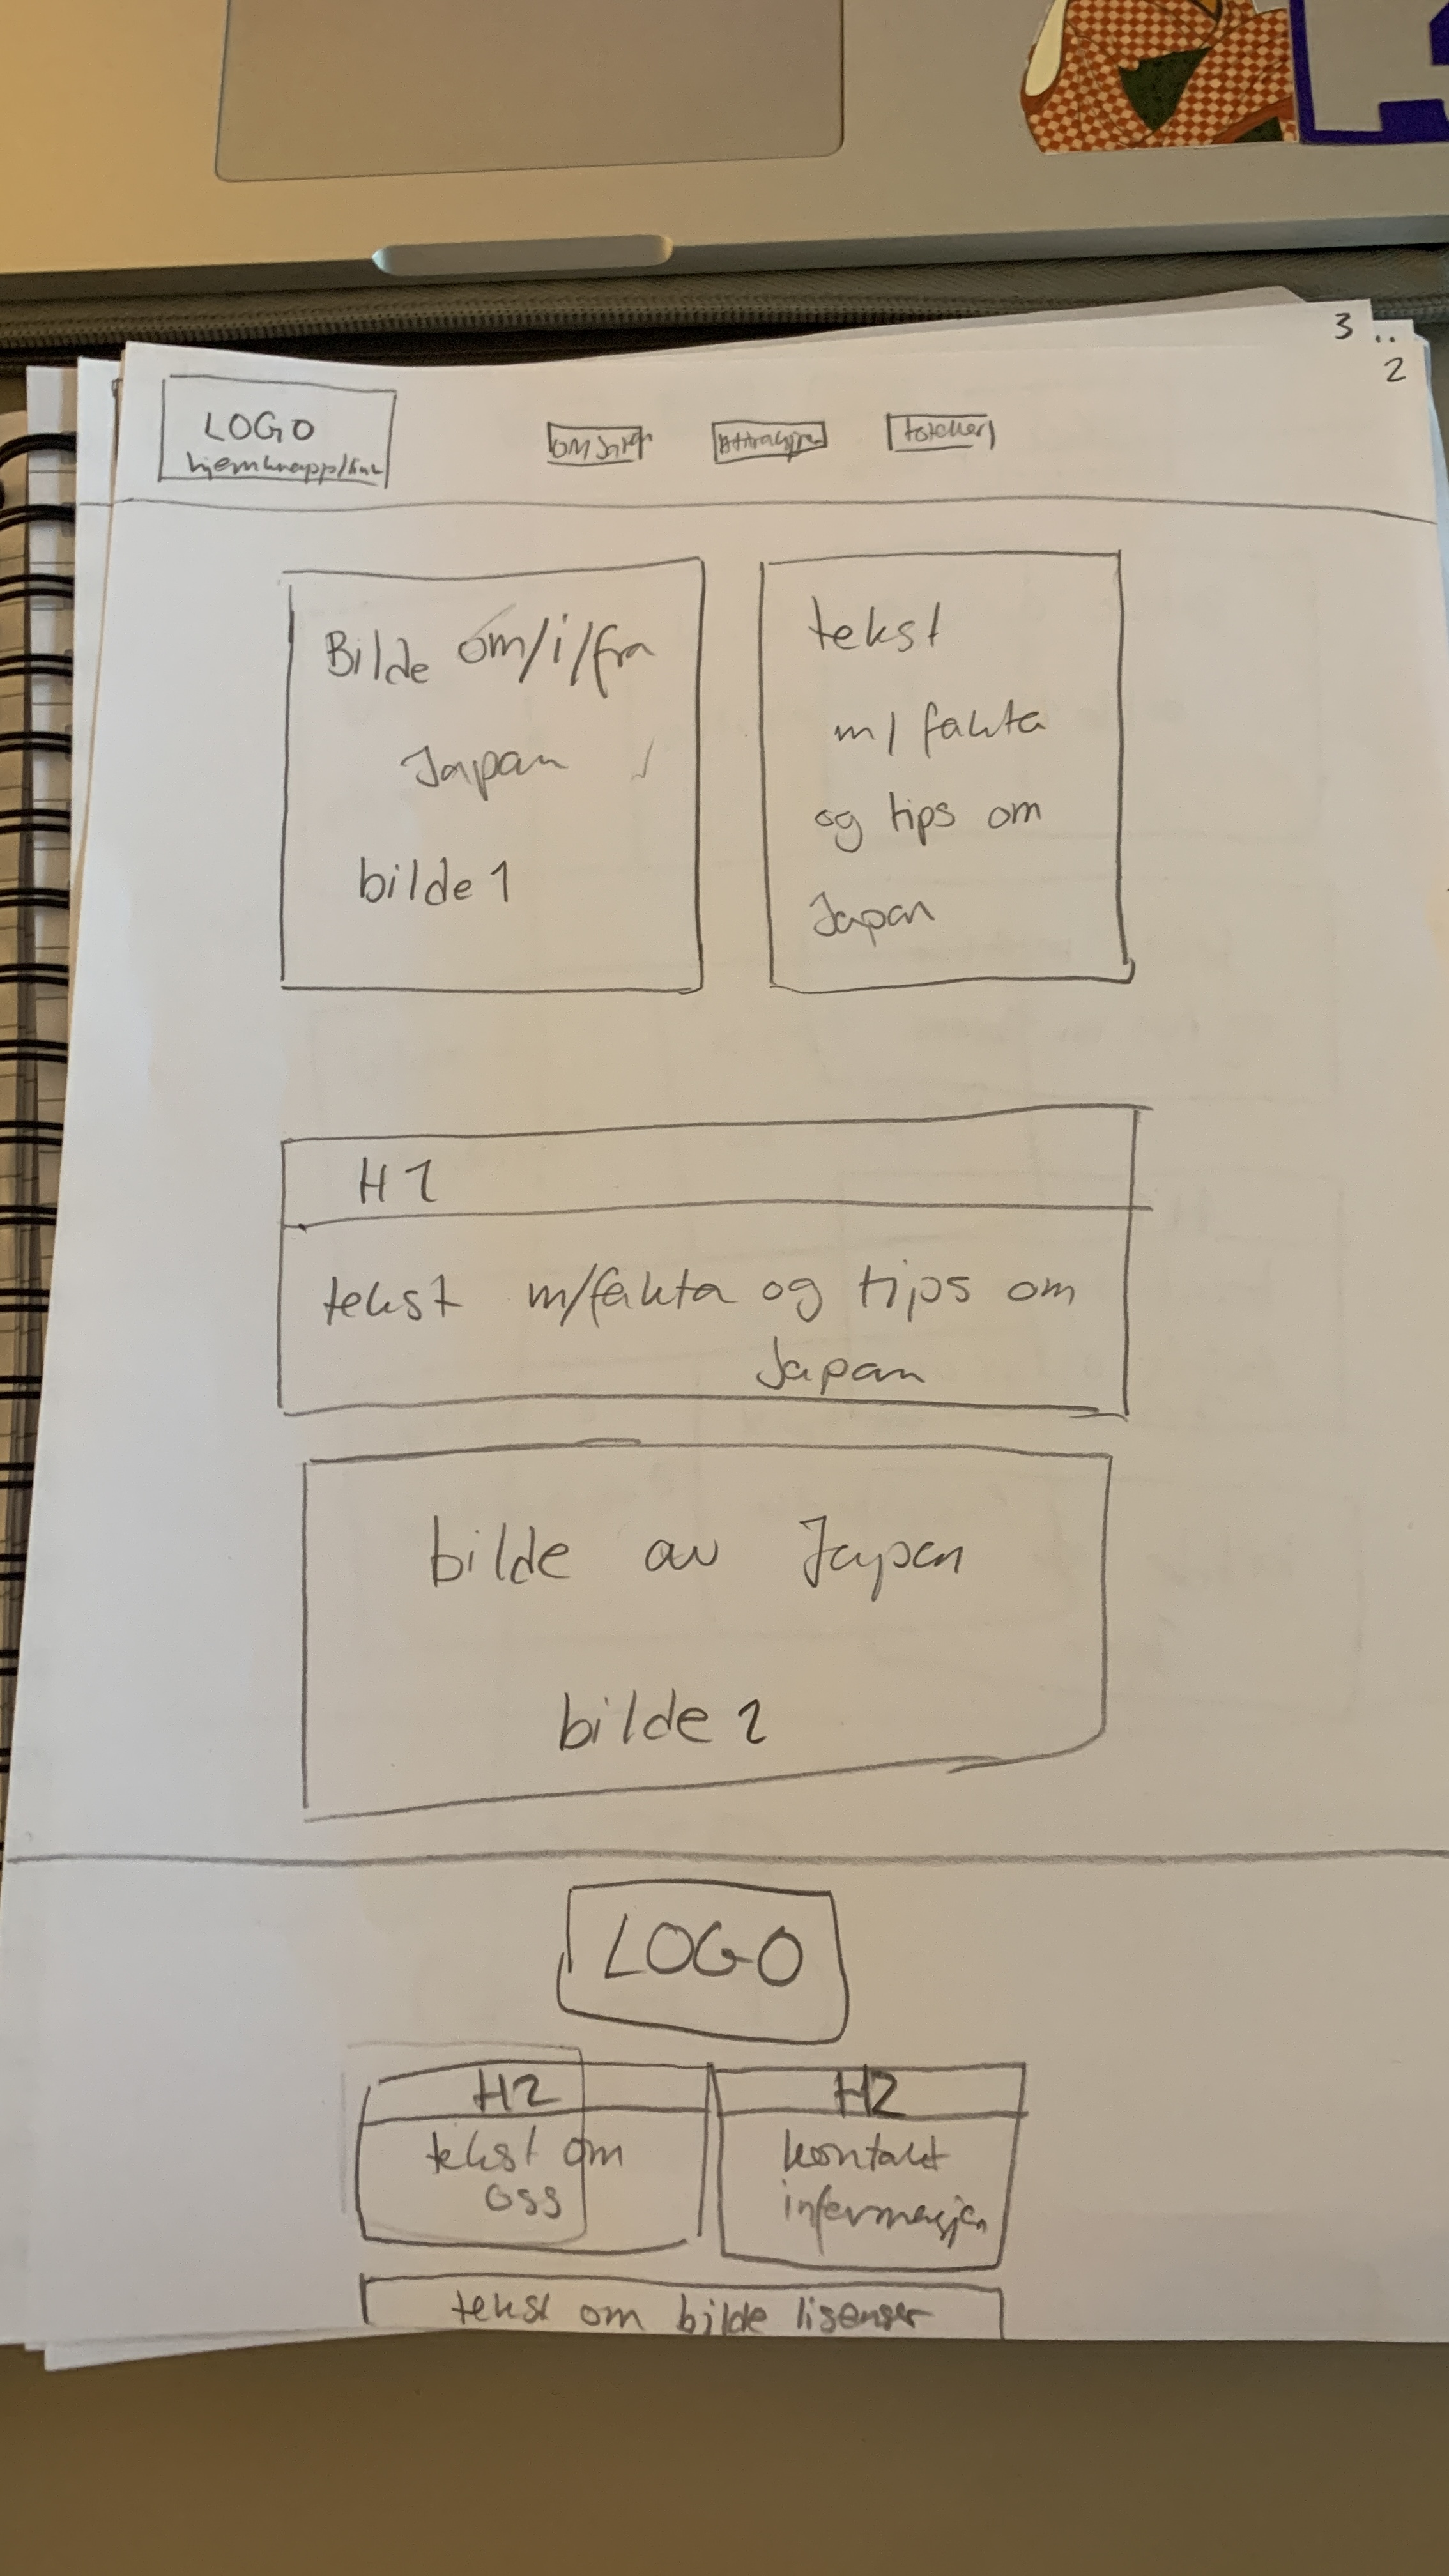 3 ..
2
LOGO
hjemknapp/link
om Japan
Attraksjoner
Bilde om/i/fra
Japan
bilde 1
tekst
m/ fakta
og tips om
Japan
H1
tekst m/fakta og tips om
Japan
bilde av Japan
bilde 2
LOGO
H2
tekst om
oss
H2
kontakt
informasjon
tekst om bilde lisenser